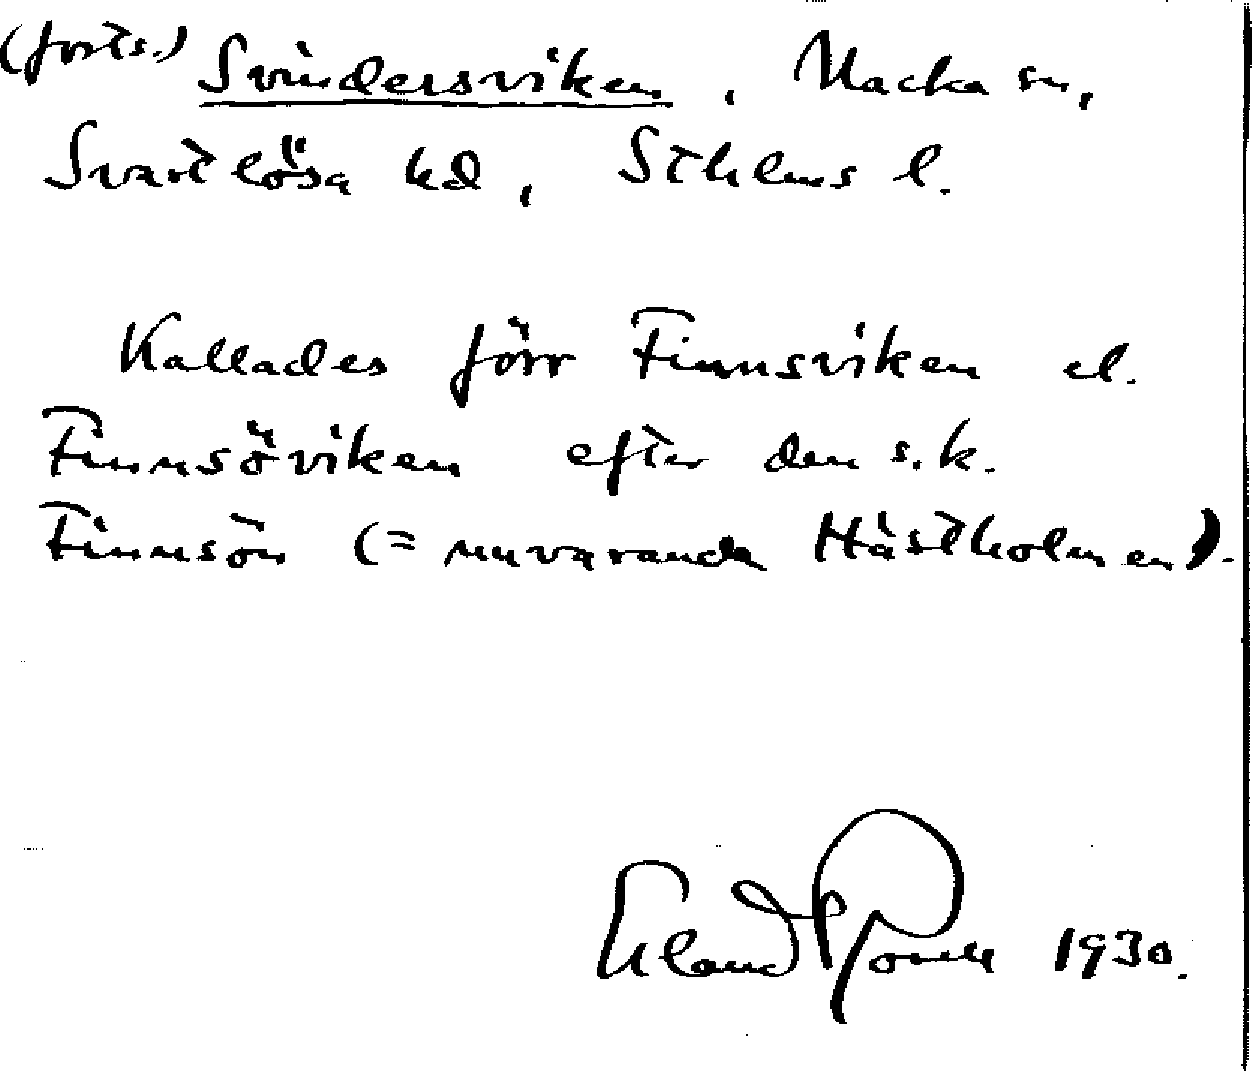 (forts.) Svindersviken, Nacka sn,
Svartlösa hd, Sthlms l.
Kallades förr Finnsviken el.
Finnsöviken efter den s.k.
Finnsön (= nuvarande Hästholmen).
1930.